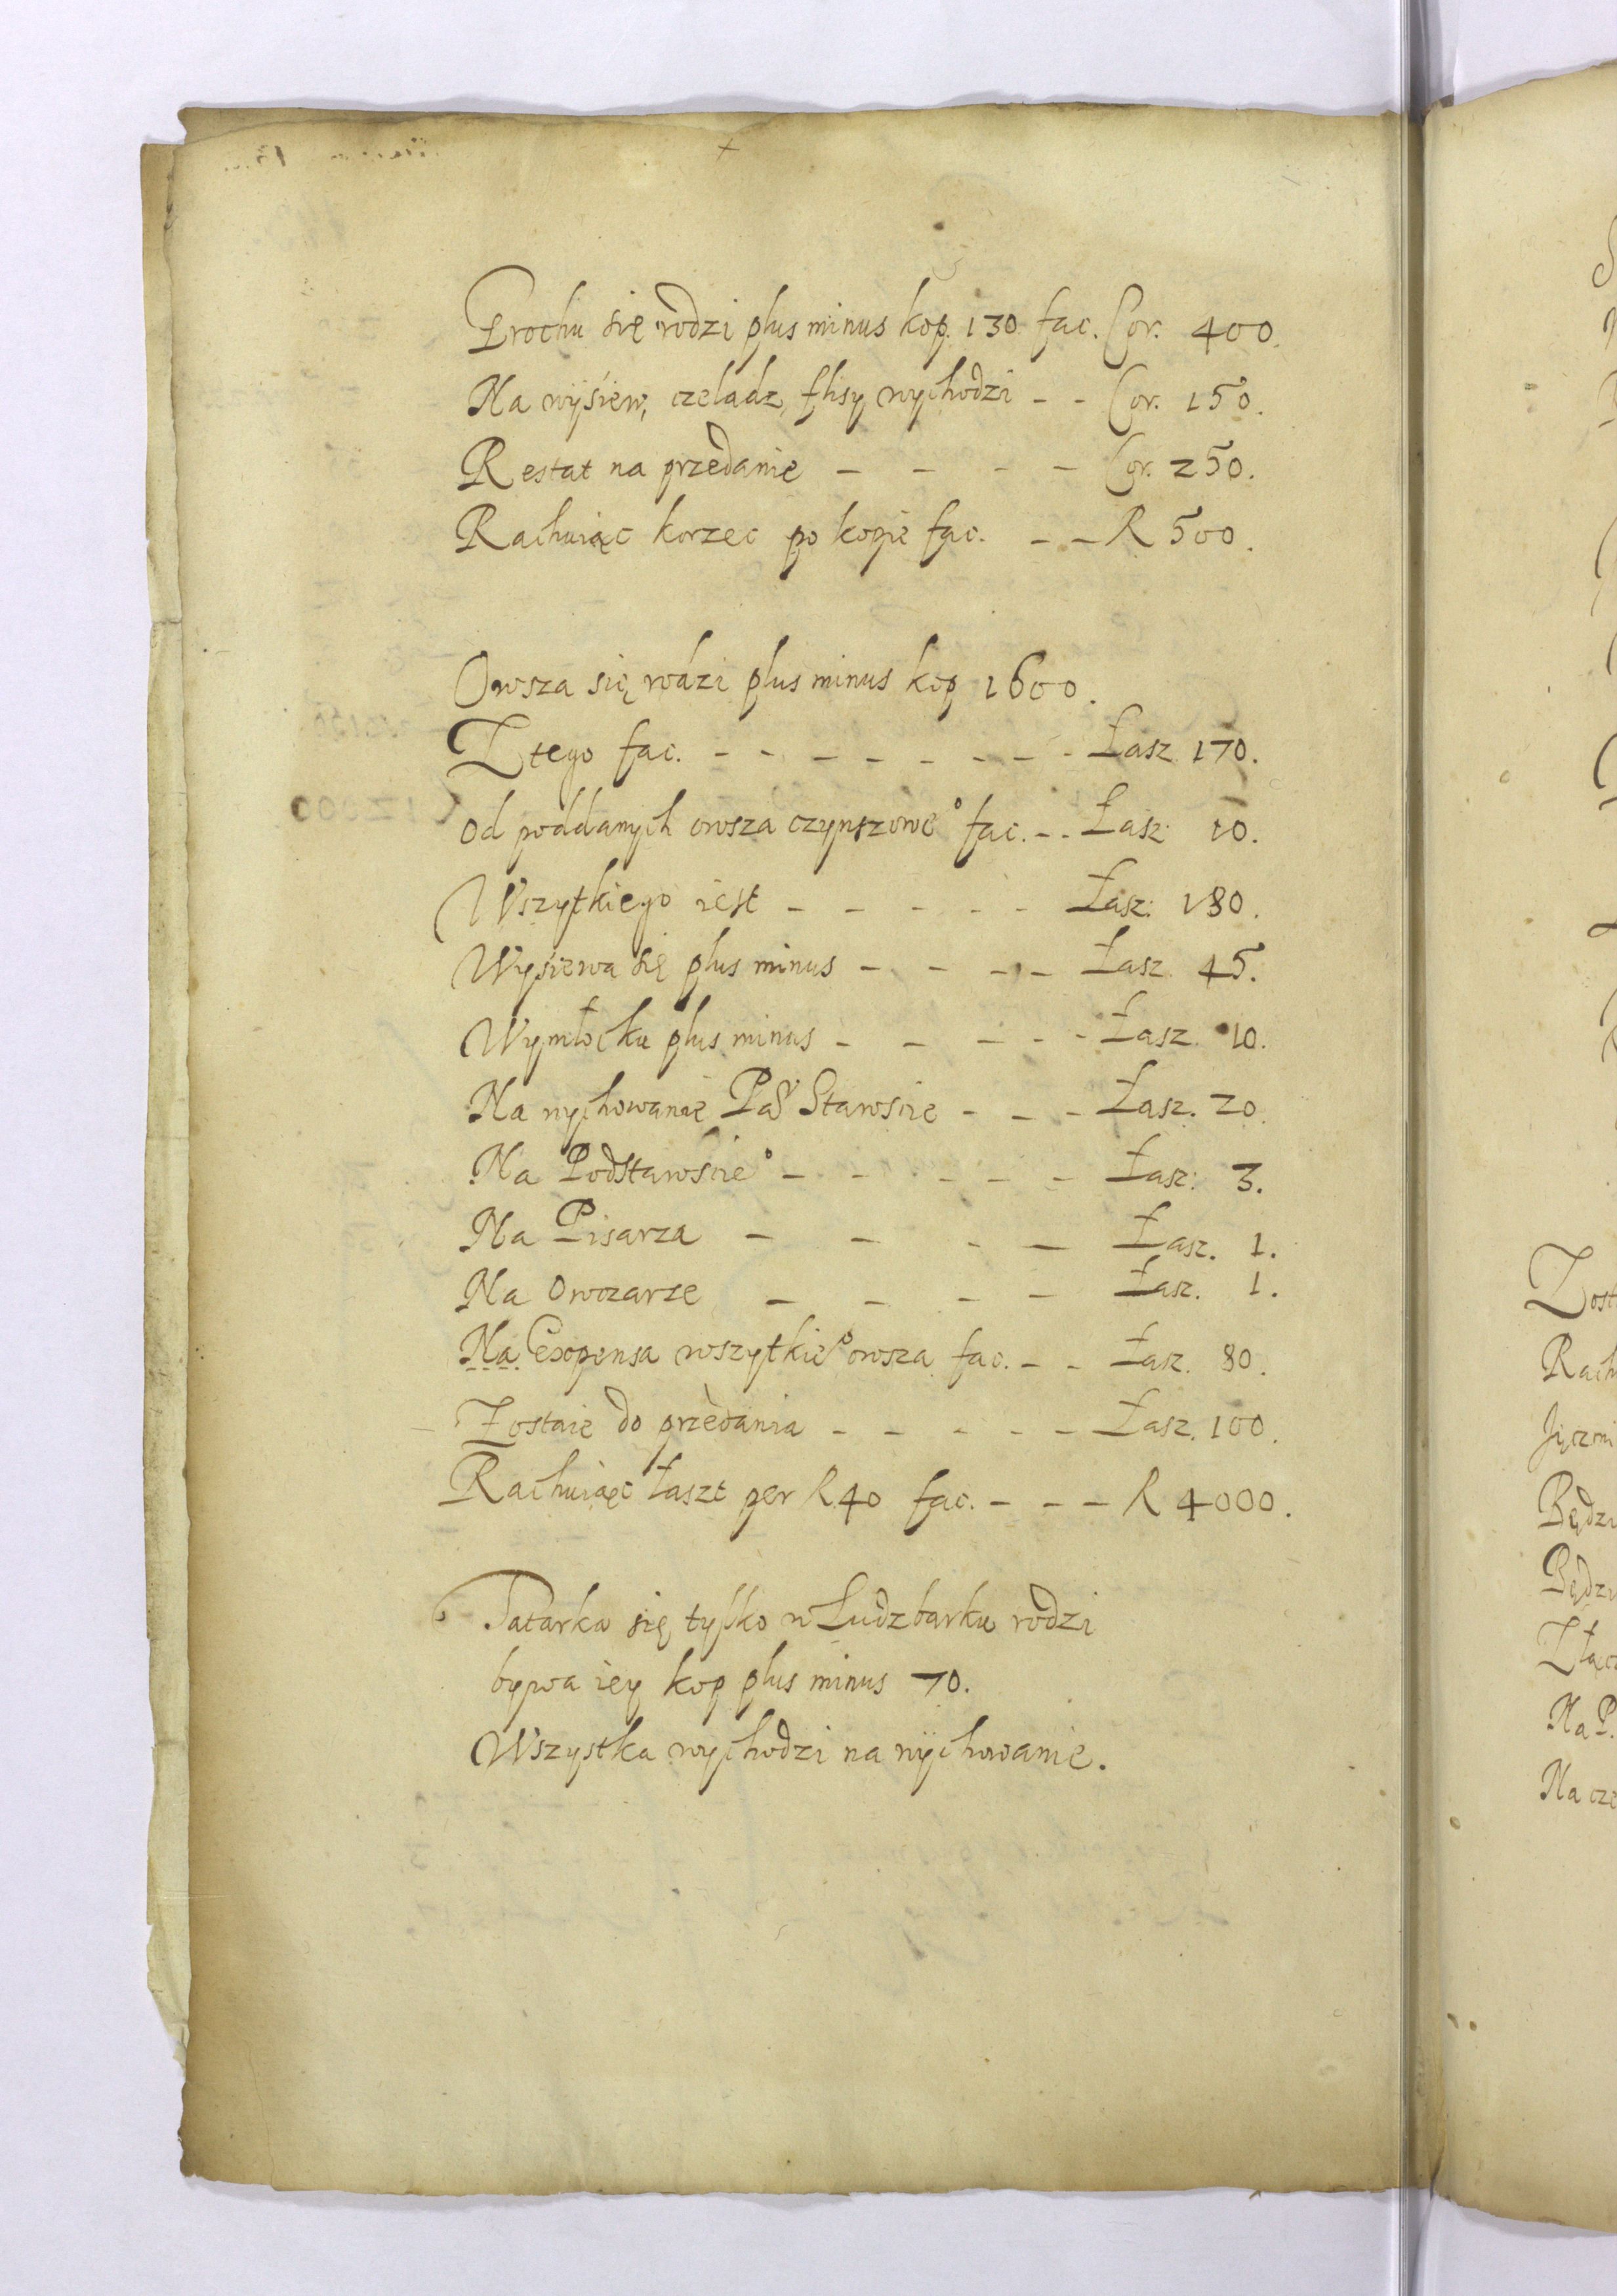 Grochu się rodzi plus minus kop. 130 fac. Cor. 400.
Na wyśiew, czeladz, flisy wychodzi - - Cor. 150.
Restat na przedanie - - - - Cor. 250.
Rachuiąc korzec po kopie fac. - - R 500.
Owsza się rodzi plus minus kop 1600.
Z tego fac. - - - - - - - - Łasz. 170.
Od poddanych owsza czynszowe° fac. - - Łasz. 10.
Wszytkiego iest - - - - - Łasz: 180.
Wyśiewa się plus minus - - - - Łasz. 45.
Wymłocku plus minus - - - - - Łasz. 10.
Na wychowanie Starośċie - - - Łasz. 20.
Na Podstarośċie° - - - - - Łasz: 3.
Na Pisarza - - - - Łasz. 1.
Na Owczarze - - - - Łasz. 1.
Na Expensa wszytkie° owsza fac. - - Łasz. 80.
Zostaie do przedania - - - - - Łasz. 100.
Rachuiąc łaszt per R 40 fac. - - - R 4000.
Tatarka się tylko w Ludzbarku rodzi
bywa iey kop plus minus 70.
Wszystka wychodzi na wychowanie.
Rach
Będzi
Będzi
Na P.
Na cze